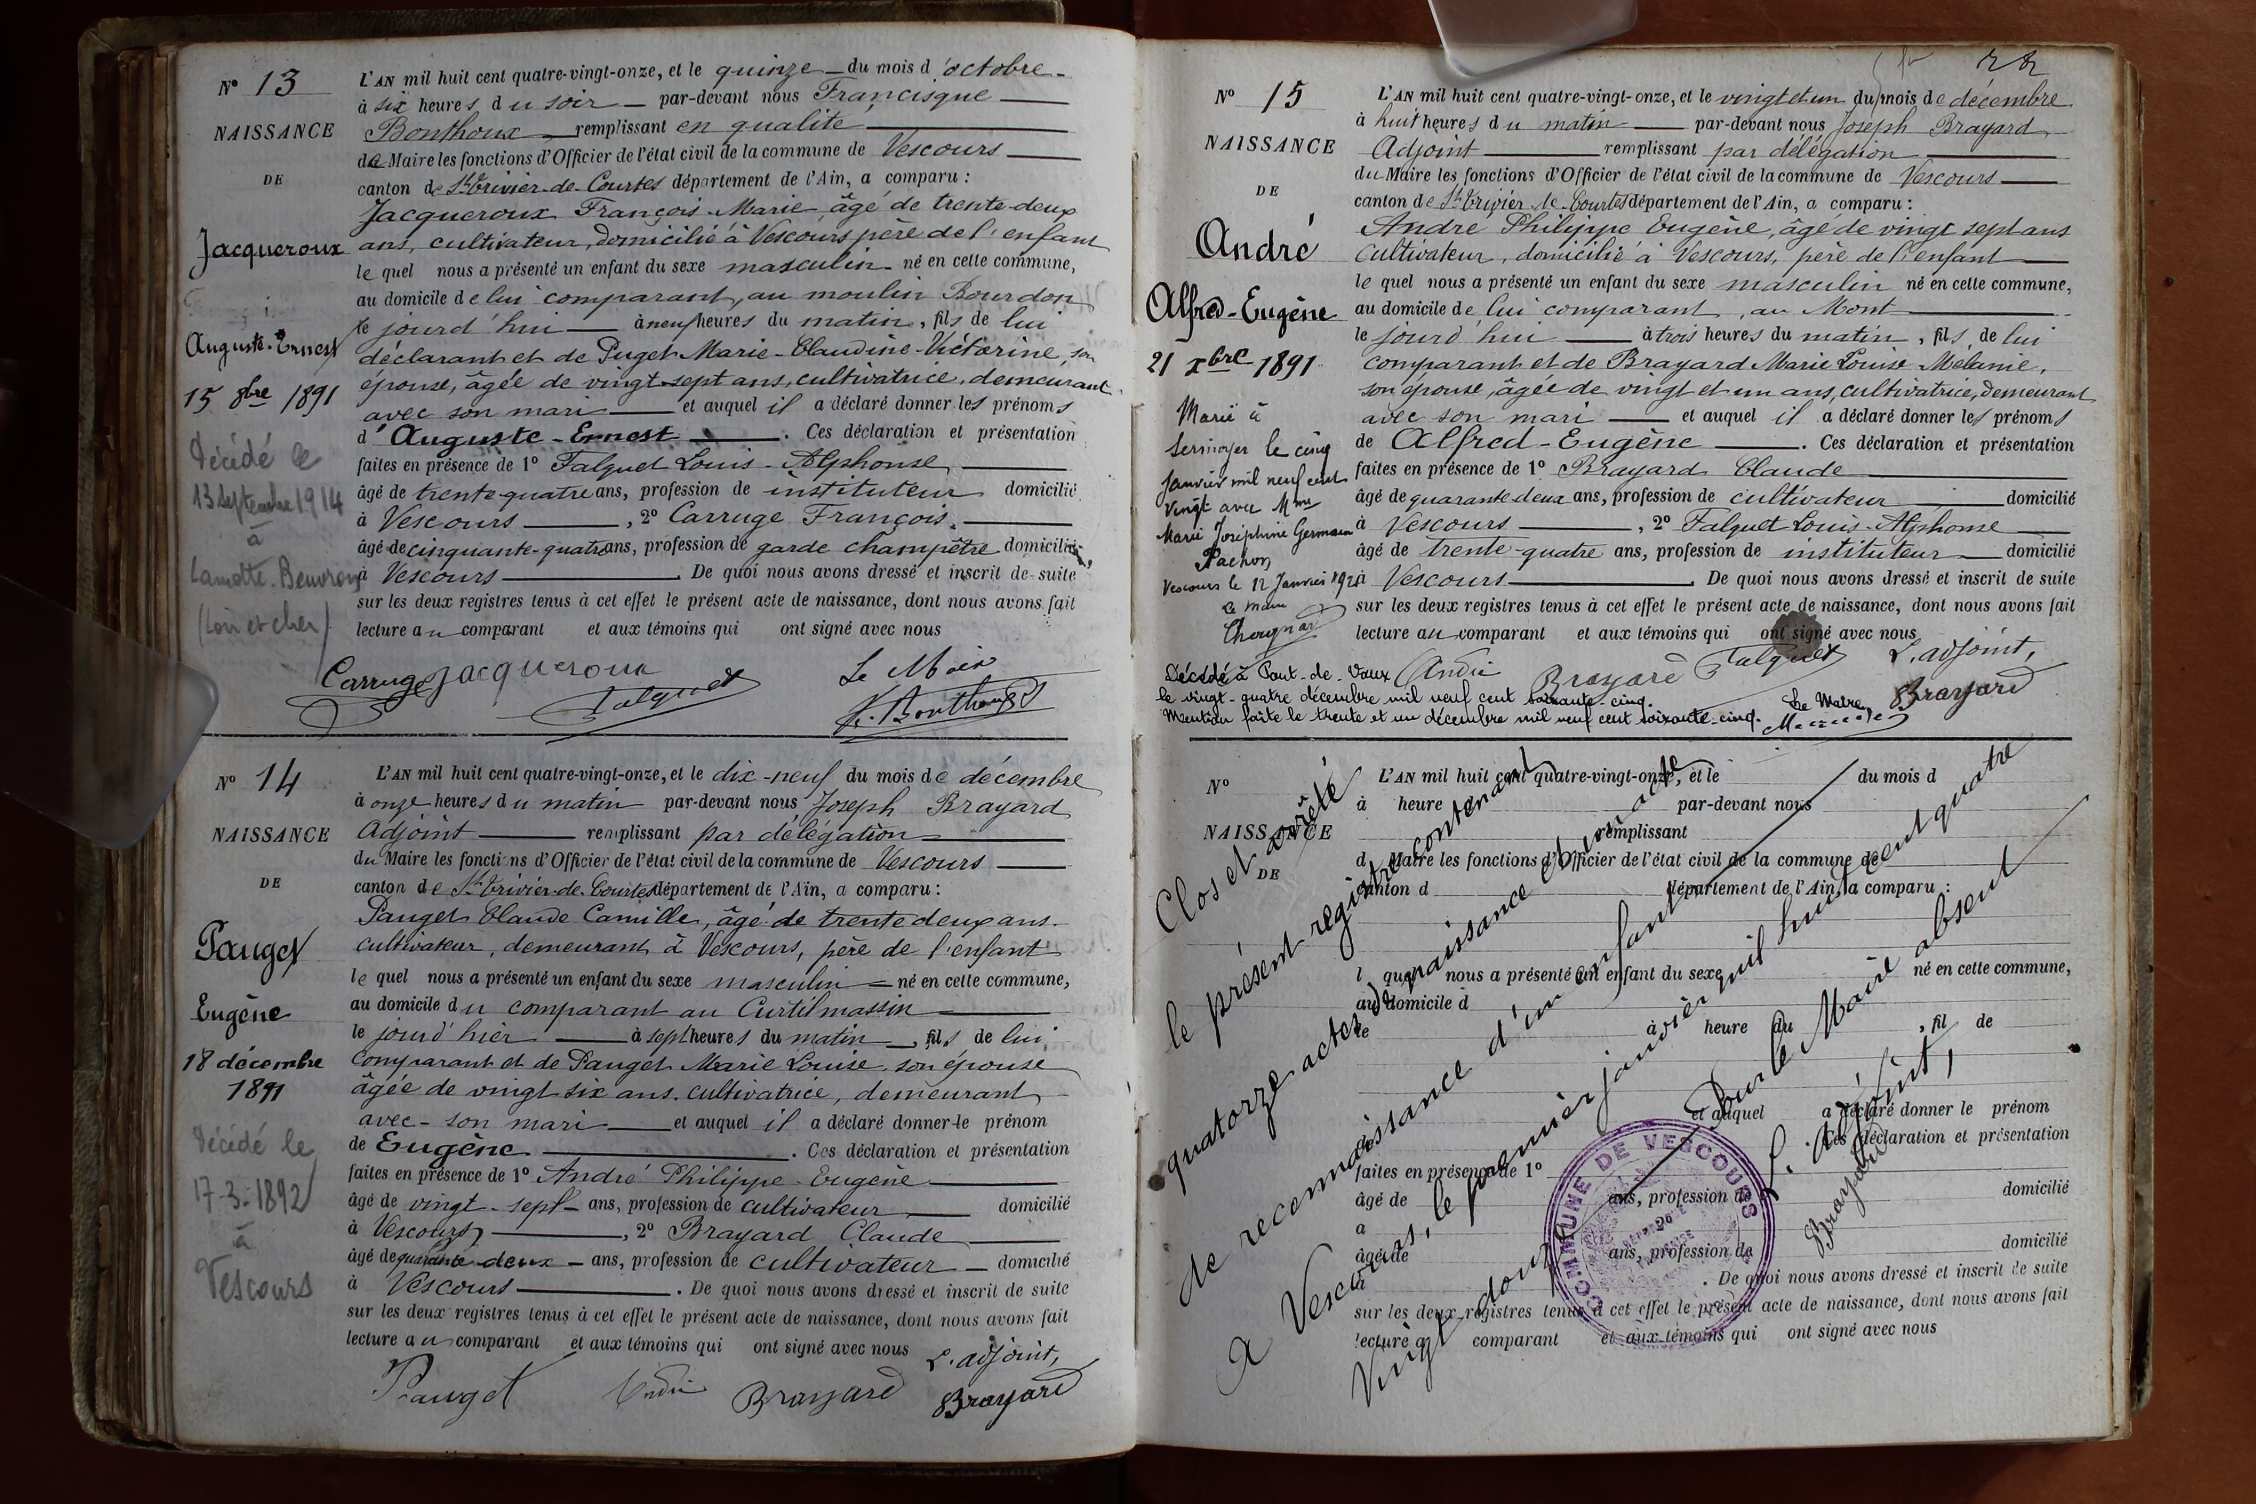 N° 13
NAISSANCE
DE
Jacqueroux
Auguste-Ernest
15 8bre 1891
Décédé le
13 septembre 1914
à
Lamotte-Beuvron
(Loir et cher)
L'AN mil huit cent quatre-vingt-onze, et le quinze du mois d'octobre
à six heures du soir par-devant nous Francisque
Bonthoux remplissant en qualité
de Maire les fonctions d'Officier de l'état civil de la commune de Vescours
canton de St Trivier-de-Courtes département de l'Ain, a comparu :
Jacqueroux François-Marie âgé de trente-deux
ans, cultivateur, domicilié à Vescours père de l'enfant
le quel nous a présenté un enfant du sexe masculin né en cette commune,
au domicile de lui comparant, au moulin Bourdon
le jourd'hui à neuf heures du matin, fils de lui
déclarant et de Puget Marie-Claudine-Victorine, son
épouse, âgée de vingt-sept ans, cultivatrice, demeurant
avec son mari et auquel il a déclaré donner les prénoms
d'Auguste-Ernest. Ces déclaration et présentation
faites en présence de 1° Falquet Louis-Alphonse
âgé de trente-quatre ans, profession de instituteur domicilié
à Vescours, 2° Carruge François
âgé de cinquante-quatre ans, profession de garde champêtre domicilié
à Vescours. De quoi nous avons dressé et inscrit de suite
sur les deux registres tenus à cet effet le présent acte de naissance, dont nous avons fait
lecture au comparant et aux témoins qui ont signé avec nous
Carruge Jacqueroux Falquet Le Maire
F. Bonthoux
N° 14
NAISSANCE
DE
Pauget
Eugène
18 décembre
1891
Décédé le
17-3-1892
à
Vescours
L'AN mil huit cent quatre-vingt-onze, et le dix-neuf du mois de décembre
à onze heures du matin par-devant nous Joseph Brayard
Adjoint remplissant par délégation
du Maire les fonctions d'Officier de l'état civil de la commune de Vescours
canton de St Trivier-de-Courtes département de l'Ain, a comparu :
Pauget Claude Camille, âgé de trente deux ans
cultivateur, demeurant à Vescours, père de l'enfant
le quel nous a présenté un enfant du sexe masculin né en cette commune,
au domicile du comparant au Curtilmassin
le jourd'hier à sept heures du matin, fils de lui
comparant et de Pauget Marie Louise son épouse
âgée de vingt six ans, cultivatrice, demeurant
avec son mari et auquel il a déclaré donner le prénom
de Eugène. Ces déclaration et présentation
faites en présence de 1° André Philippe Eugène
âgé de vingt-sept ans, profession de cultivateur domicilié
à Vescours, 2° Brayard Claude
âgé de quarante-deux ans, profession de cultivateur domicilié
à Vescours. De quoi nous avons dressé et inscrit de suite
sur les deux registres tenus à cet effet le présent acte de naissance, dont nous avons fait
lecture au comparant et aux témoins qui ont signé avec nous
L'adjoint,
Pauget André Brayard Brayard
22
N° 15
NAISSANCE
DE
André
Alfred-Eugène
21 Xbre 1891
Marié à
Sermoyer le cinq
Janvier mil neuf cent
vingt avec
Marie Joséphine Germaine
Pachon
Vescours le 12 Janvier 1920
Le Maire
L'AN mil huit cent quatre-vingt-onze, et le vingt et un du mois de décembre
à huit heures du matin par-devant nous Joseph Brayard
Adjoint remplissant par délégation
du Maire les fonctions d'Officier de l'état civil de la commune de Vescours
canton de St Trivier-de-Courtes département de l'Ain, a comparu :
André Philippe Eugène, âgé de vingt sept ans
cultivateur, domicilié à Vescours, père de l'enfant
le quel nous a présenté un enfant du sexe masculin né en cette commune,
au domicile de lui comparant, au Mont
le jourd'hui à trois heures du matin, fils de lui
comparant et de Brayard Marie Louise Mélanie,
son épouse, âgée de vingt et un ans, cultivatrice, demeurant
avec son mari et auquel il a déclaré donner les prénoms
de Alfred-Eugène. Ces déclaration et présentation
faites en présence de 1° Brayard Claude
âgé de quarante deux ans, profession de cultivateur domicilié
à Vescours, 2° Falquet Louis-Alphonse
âgé de trente-quatre ans, profession de instituteur domicilié
à Vescours. De quoi nous avons dressé et inscrit de suite
sur les deux registres tenus à cet effet le présent acte de naissance, dont nous avons fait
lecture au comparant et aux témoins qui ont signé avec nous
André Brayard Falquet L'adjoint,
Brayard
Décédé à Pont-de-Vaux
le vingt-quatre décembre mil neuf cent soixante-cinq.
Mention faite le trente et un décembre mil neuf cent soixante-cinq. Le Maire
N°
NAISSANCE
DE
L'AN mil huit cent quatre-vingt-onze, et le du mois d
à heure par-devant nous
remplissant
d Maire les fonctions d'Officier de l'état civil de la commune de
canton d département de l'Ain, a comparu :
l quel nous a présenté un enfant du sexe né en cette commune,
au domicile d
le à heure du , fil de
et auquel a déclaré donner le prénom
de Ces déclaration et présentation
faites en présence de 1°
âgé de ans, profession de domicilié
à
âgé de ans, profession de domicilié
à . De quoi nous avons dressé et inscrit de suite
sur les deux registres tenus à cet effet le présent acte de naissance, dont nous avons fait
lecture a comparant et aux témoins qui ont signé avec nous
Clos et arrêté
le présent registre contenant
quatorze actes de naissance et un acte
de reconnaissance d'un enfant
A Vescours, le premier janvier mil huit cent quatre
vingt douze
Pour le Maire absent
L'adjoint,
Brayard
COMMUNE DE VESCOURS